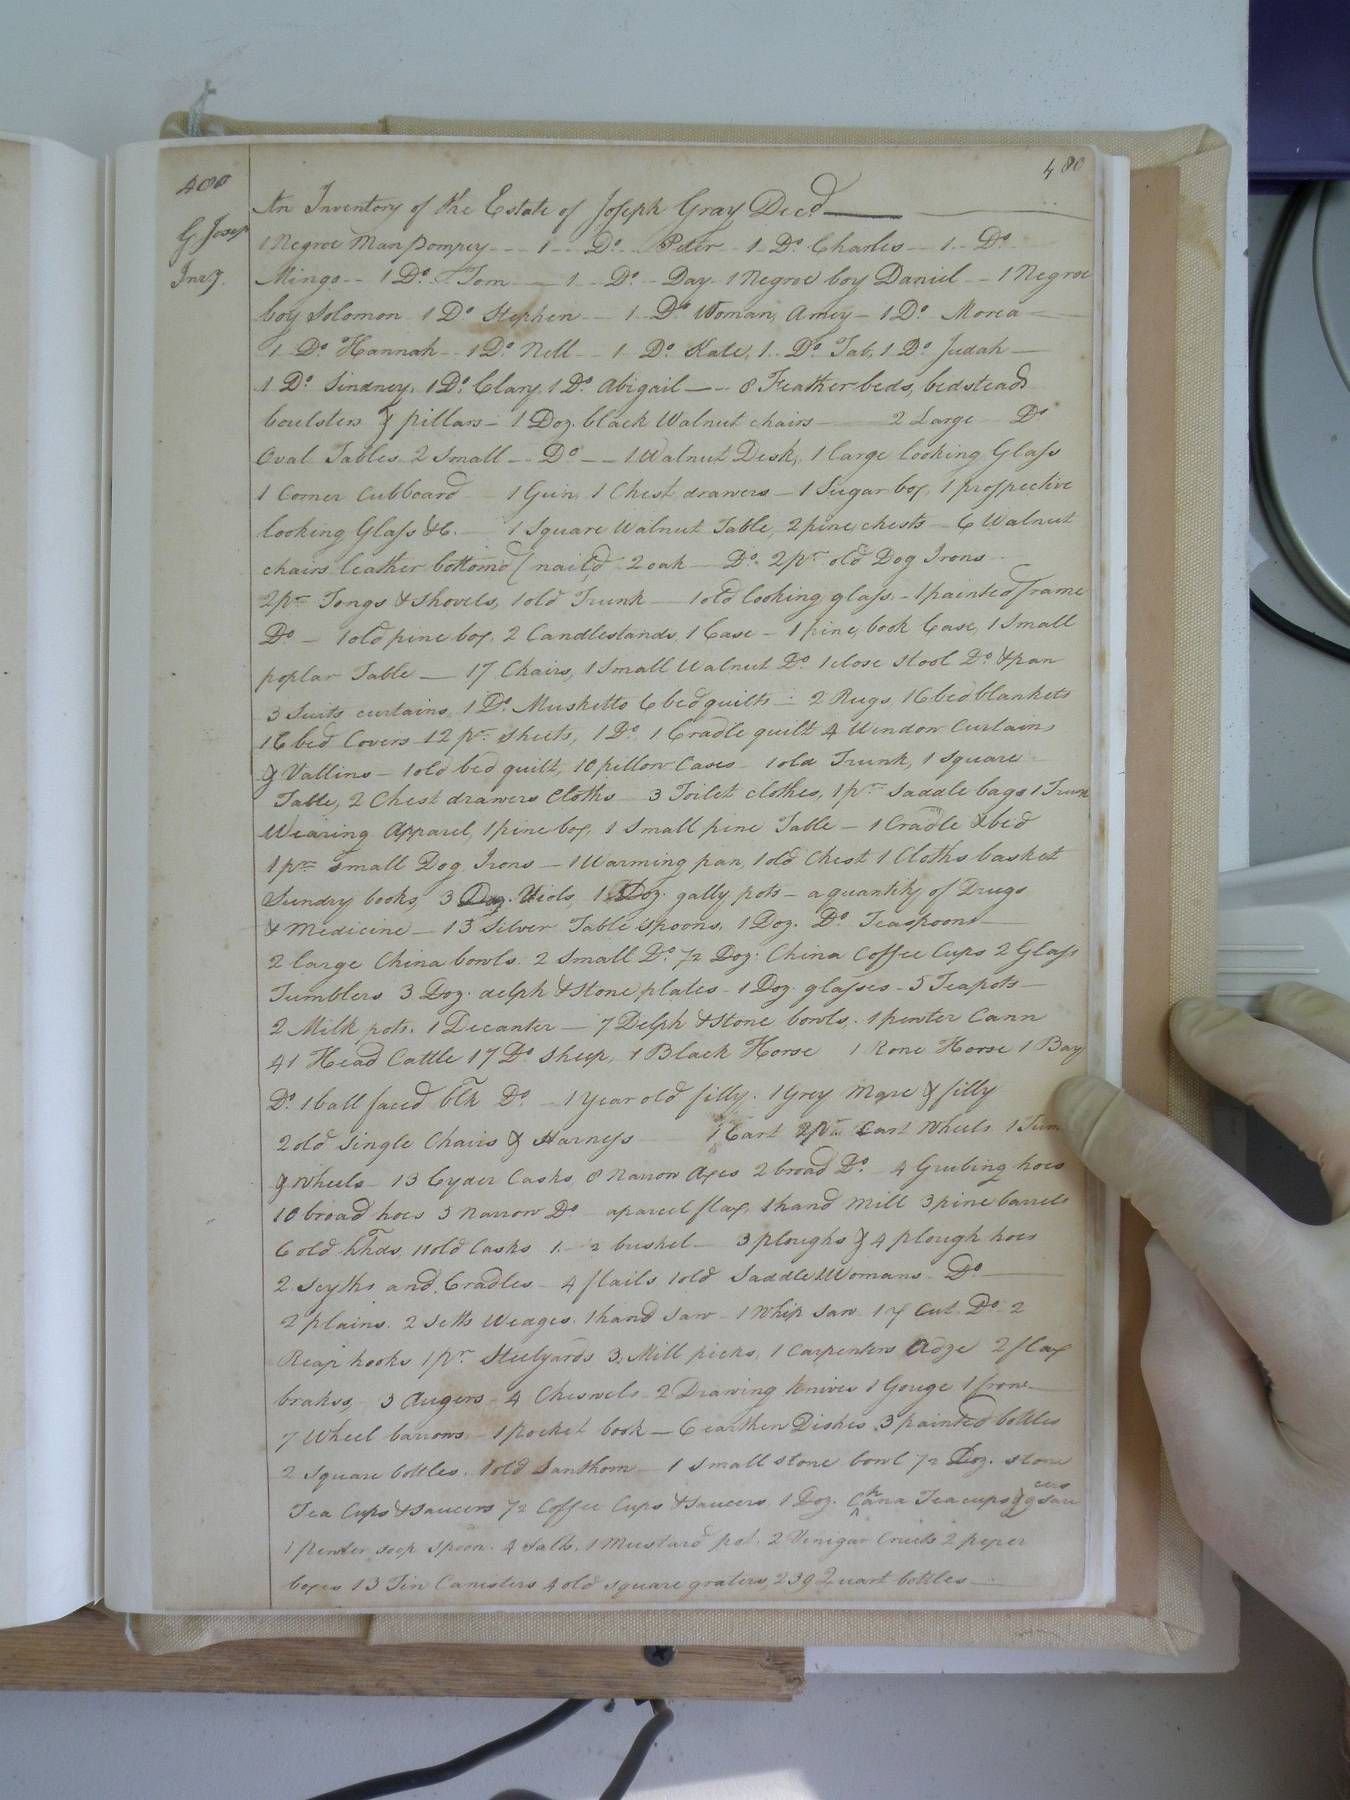 400
480
G Josep
Invy.
An Inventory of the Estate of Joseph Gray Decd
1 Negroe Man Pompey 1 Do. Peter 1 Do Charles 1 Do
Mingo 1 Do. Tom 1 Do. Day 1 Negroe boy Daniel 1 Negroe
boy Solomon 1 Do Stephen 1 Do Woman, Amey 1 Do Morea
1 Do Hannah 1 Do Nell 1 Do Kate, 1 Do Tab, 1 Do Judah
1 Do Sindney, 1 Do Clary, 1 Do Abigail 8 Feather beds, bedsteads
boulsters & pillars 1 Doz. black Walnut chairs 2 Large Do
Oval Tables 2 Small Do 1 Walnut Desk, 1 large looking Glass
1 Corner Cubboard 1 Gun, 1 Chest drawers 1 Sugar box, 1 prospective
looking Glass &c. 1 Square Walnut Table, 2 pine chests 6 Walnut
chairs leather bottomd nail'd 2 oak Do. 2 pr old Dog Irons
2 pr Tongs & Shovels, 1 old Trunk 1 old looking glass 1 painted frame
Do 1 old pine box, 2 Candlestands, 1 Case 1 pine book Case, 1 Small
poplar Table 17 Chairs, 1 Small Walnut Do 1 close stool Do & pan
3 Suits curtains, 1 Do. Musketto 6 bed quilts 2 Rugs, 16 bed blankets
16 bed Covers 12 pr. sheets, 1 Do, 1 Cradle quilt 4 Window Curtains
& Vallins 1 old bed quilt, 10 pillow Cases 1 old Trunk, 1 square
Table, 2 Chest drawers Cloths 3 Toilet clothes, 1 pr Saddle bags 1 Trunk
Wearing Apparel, 1 pine box, 1 Small pine Table 1 Cradle & bed
1 pr small Dog Irons 1 Warming pan, 1 old Chest 1 Cloths basket
Sundry books, 3 Doz. Viols, 1 Doz. gally pots a quantity of Drugs
& Medicine 13 Silver Table Spoons, 1 Doz. Do Teaspoons
2 large China bowls. 2 Small Do ½ Doz. China Coffee Cups 2 Glass
Tumblers 3 Doz. delph & stone plates 1 Doz. glasses 5 Teapots
2 Milk pots. 1 Decanter 7 Delph & Stone bowls, 1 pewter Cann
41 Head Cattle 17 Do. Sheep, 1 Black Horse 1 Rone Horse 1 Bay
Do. 1 ball faced blk Do. 1 Year old filly. 1 Grey Mare & filly
2 old Single Chairs & Harness 1 Cart 2 pr Cart Wheels 1 Tum
& wheels 13 Cyder Casks, 8 Narrow Axes 2 broad Do. 4 Grubing hoes
10 broad hoes 3 Narrow Do a parcel flax, 1 hand Mill 3 pine barrels
6 old hhds, 11 old Casks 1 ½ bushel 3 ploughs & 4 plough hoes
2 Scyths and Cradles 4 flails 1 old Saddle Womans Do
2 plains. 2 Setts Wedges. 1 hand Saw 1 Whip Saw. 1 X Cut Do. 2
Reap hooks 1 pr. Steelyards 3 Mill picks, 1 Carpenters Adze 2 flax
brakes, 3 Augers 4 Cheswels 2 Drawing Knives 1 Gouge 1 frow
7 Wheel barrows 1 pocket book 6 earthen Dishes 3 painted bottles
2 Square bottles, 1 old Lanthorn 1 Small stone bowl ½ Doz. stone
Tea Cups & Saucers ½ Coffee Cups & Saucers 1 Doz. China Tea cups & 9 saucers
1 Pewter soop spoon. 4 Salts, 1 Mustard pot. 2 Venigar Cruits 2 peper
boxes 13 Tin Canisters 4 old square graters, 239 Quart bottles